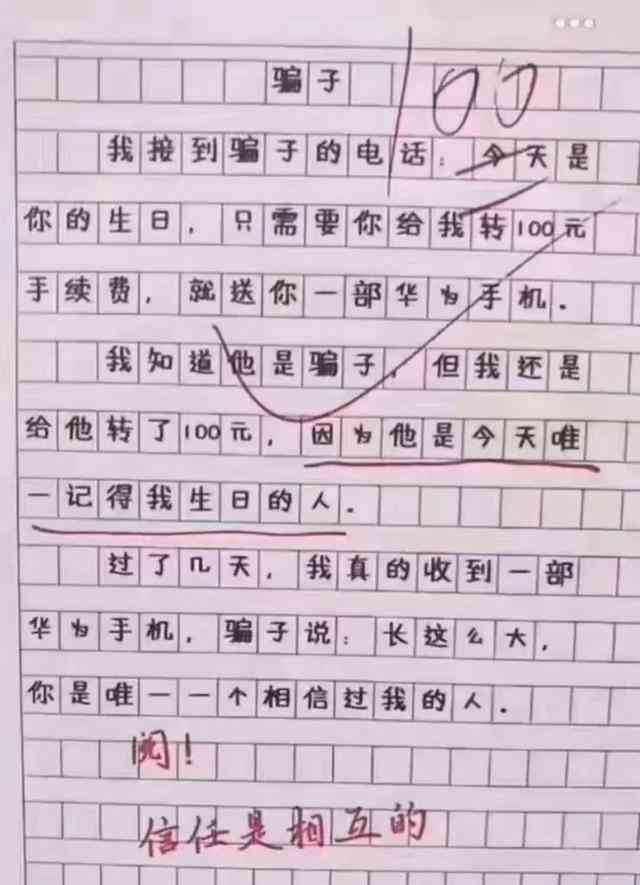 100
骗子
我接到骗子的电话：今天是
你的生日，只需要你给我转100元
手续费，就送你一部华为手机．
我知道他是骗子，但我还是
给他转了100元，因为他是今天唯
一记得我生日的人．
过了几天，我真的收到一部
华为手机，骗子说：长这么大，
你是唯一一个相信过我的人．
阅！
信任是相互的